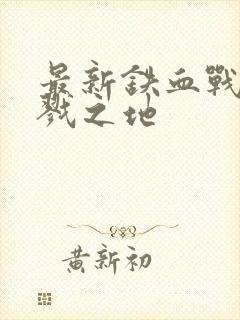 最新鉄血戰
戮之地
黄新初